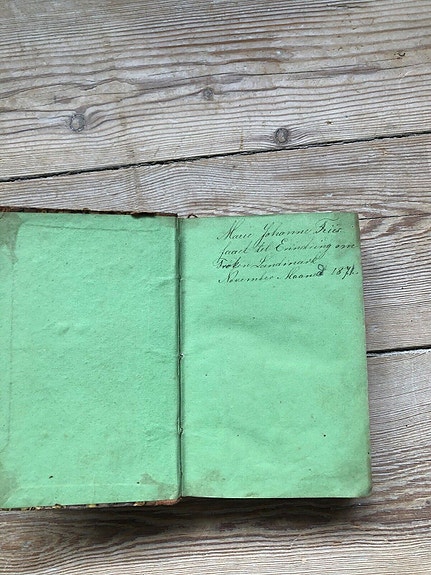 Marie Johanne Friis
faaet til Erindring om
Frøken Lundmark
November Maaned 1871.